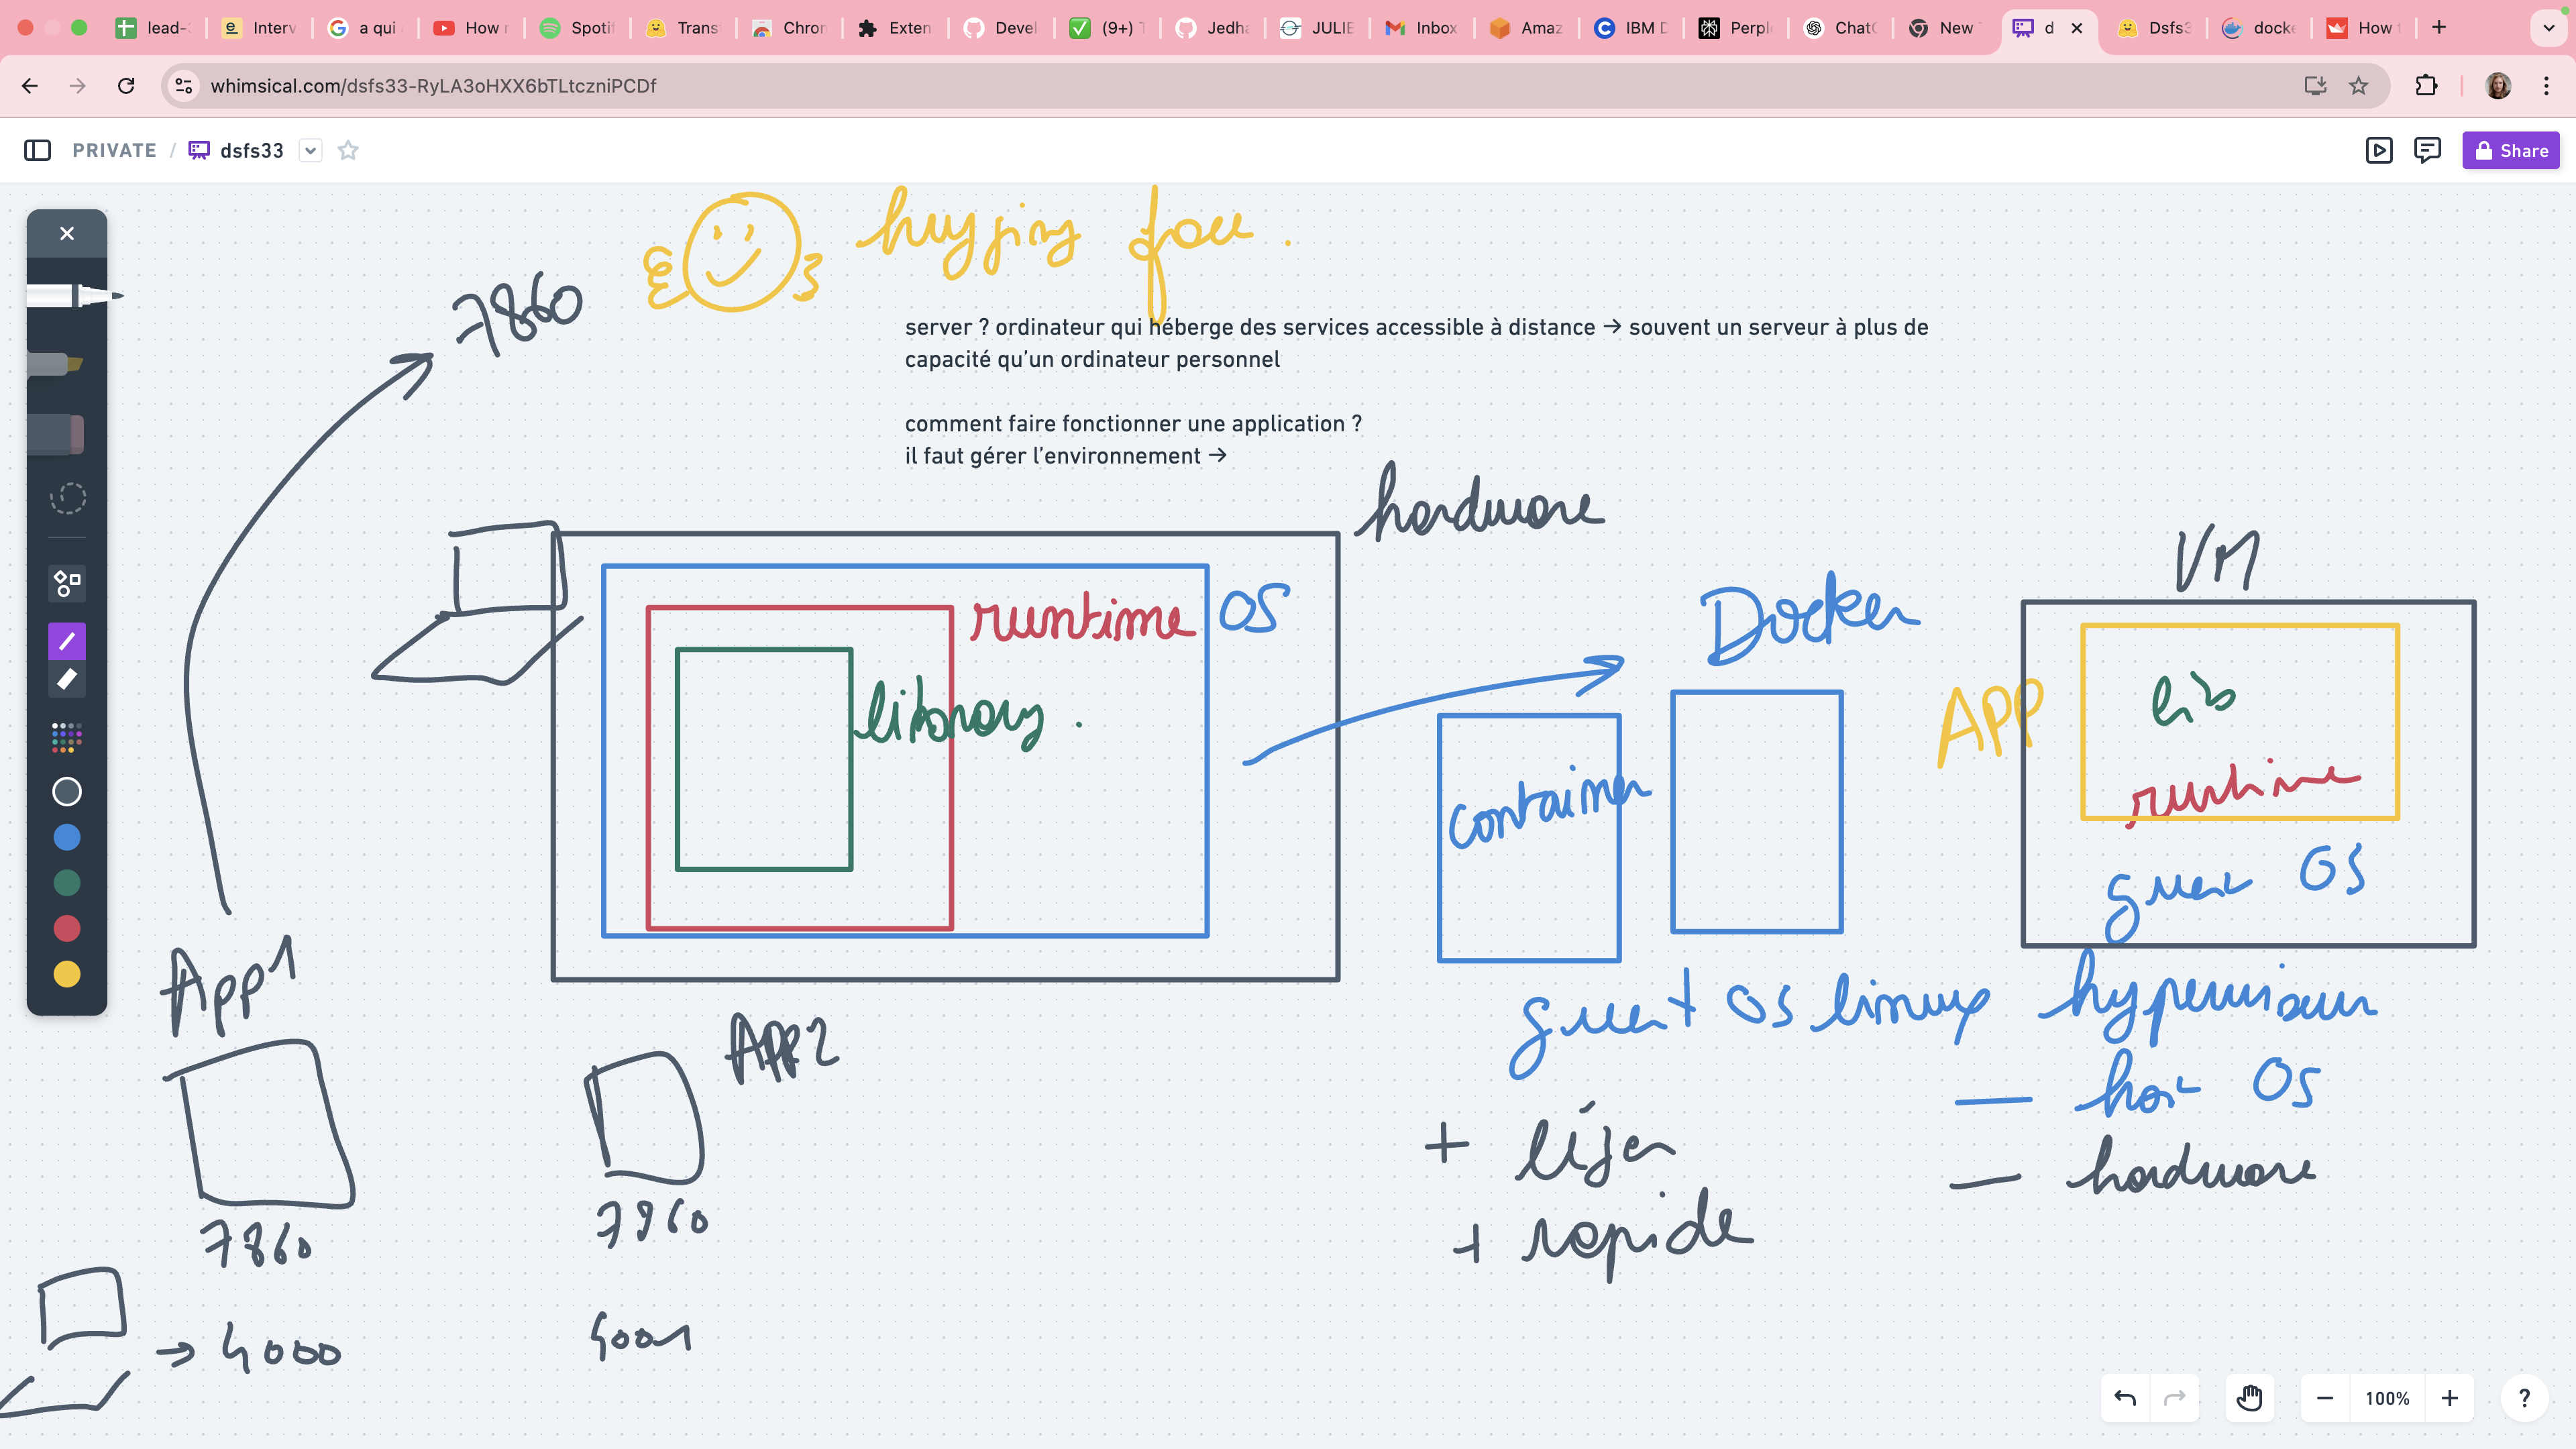 lead-
Interv
a qui
How r
Spotif
Trans
Chron
Exten
Devel
(9+) T
Jedha
JULIE
Inbox
Amaz
IBM D
Perple
ChatG
New
d
Dsfs3
docke
How t
whimsical.com/dsfs33-RyLA3oHXX6bTLtczniPCDf
PRIVATE / dsfs33
Share
hugging face .
7860
server ? ordinateur qui héberge des services accessible à distance → souvent un serveur à plus de
capacité qu'un ordinateur personnel
comment faire fonctionner une application ?
il faut gérer l'environnement →
hardware
VM
runtime
OS
Docker
library .
APP
lib
container
runtime
guest OS
App1
guest OS linux
hyperviseur
APP2
— host OS
+ léger
— hardware
7860
7860
+ rapide
→ 4000
4001
100%
?